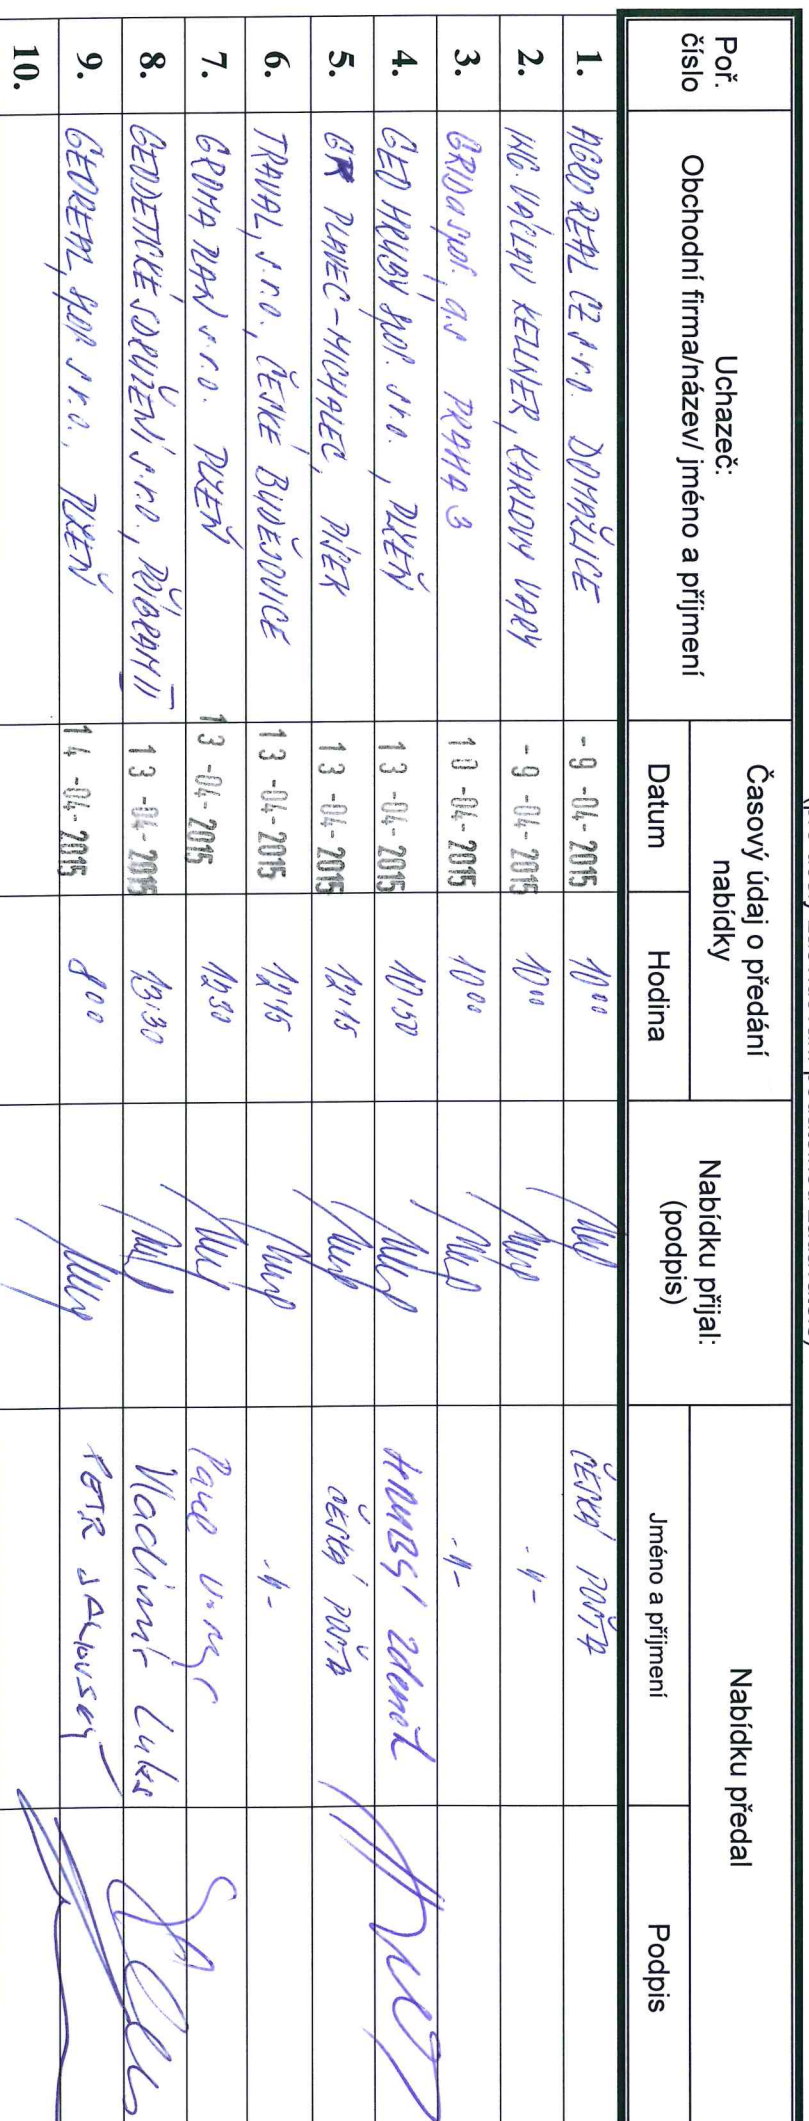 Poř. číslo | Uchazeč: Obchodní firma/název/ jméno a příjmení | Časový údaj o předání nabídky | Nabídku přijal: (podpis) | Nabídku předal
Datum | Hodina | Jméno a příjmení | Podpis
1. | AGROREAL CZ s.r.o. DOMAŽLICE | - 9 -04- 2015 | 10⁰⁰ | ČESKÁ POŠTA
2. | ING. VÁCLAV KELLNER, KARLOVY VARY | - 9 -04- 2015 | 10⁰⁰ | -"-
3. | GRID a spol., a.s PRAHA 3 | 1 0 -04- 2015 | 10⁰⁰ | -"-
4. | GEO HRUBÝ spol. s r.o., PLZEŇ | 1 3 -04- 2015 | 10:50 | HRUBÝ Zdeněk
5. | GK PLAVEC-MICHALEC, PÍSEK | 1 3 -04- 2015 | 12:15 | ČESKÁ POŠTA
6. | TRAVAL, s.r.o., ČESKÉ BUDĚJOVICE | 1 3 -04- 2015 | 12:15 | -"-
7. | GROMA PLAN s.r.o. PLZEŇ | 1 3 -04- 2015 | 12:30 | Pavel
8. | GEODETICKÉ SDRUŽENÍ s.r.o., PŘÍBRAM II | 1 3 -04- 2015 | 13:30 | Vladimír Luks
9. | GEOREAL, spol. s r.o., PLZEŇ | 1 4 -04- 2015 | 8⁰⁰ | PETR
10.